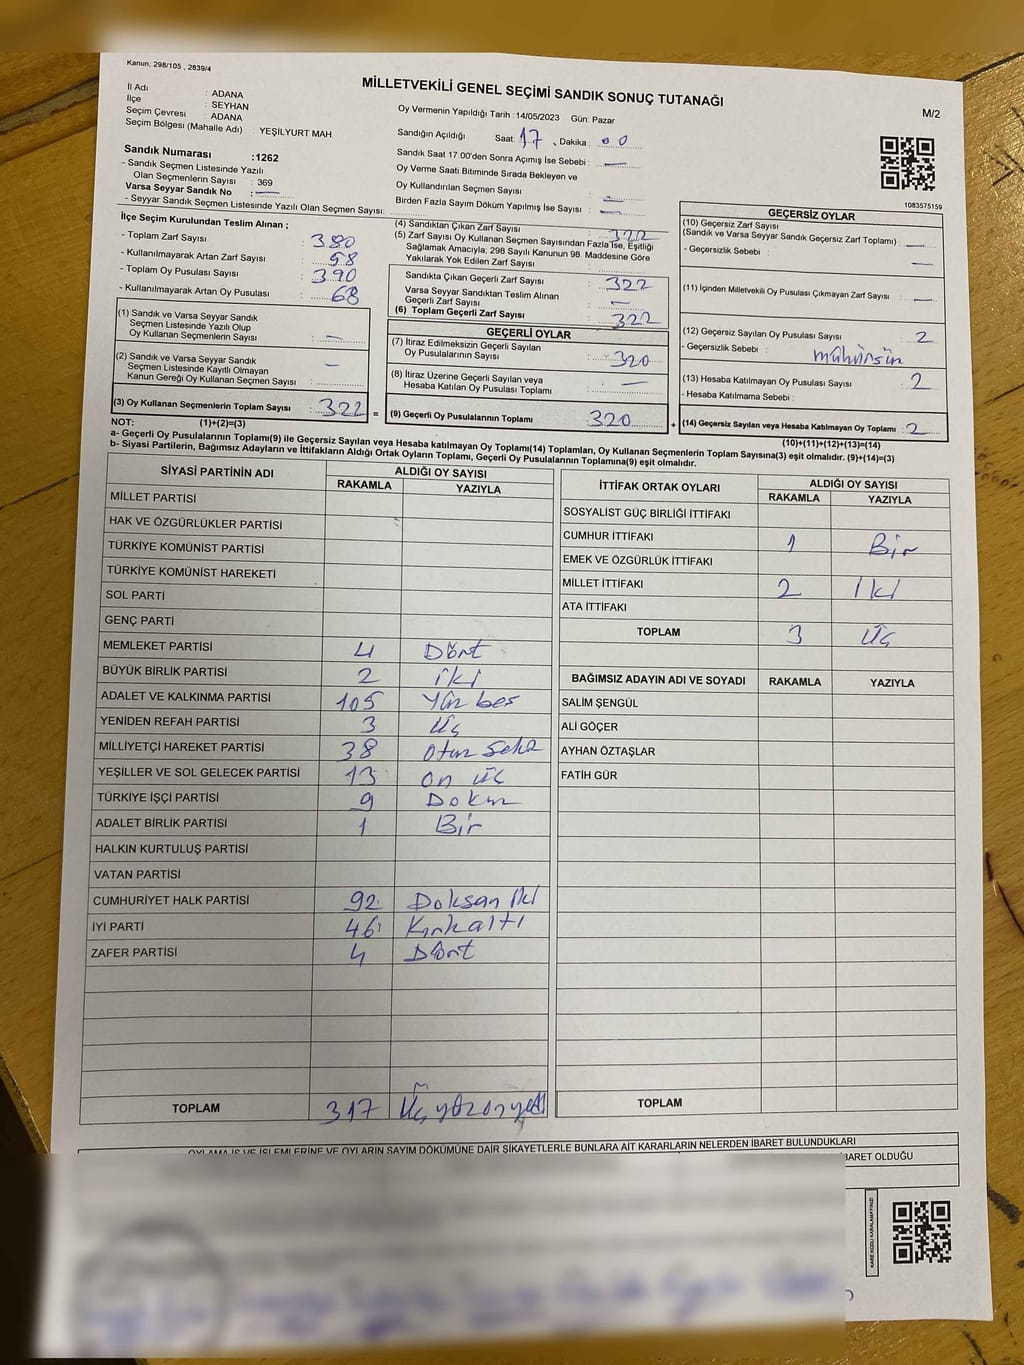 Kanun; 298/105 , 2839/4
MİLLETVEKİLİ GENEL SEÇİMİ SANDIK SONUÇ TUTANAĞI
M/2
İl Adı : ADANA
İlçe : SEYHAN
Seçim Çevresi : ADANA
Seçim Bölgesi (Mahalle Adı) : YEŞİLYURT MAH.
Oy Vermenin Yapıldığı Tarih :14/05/2023 Gün: Pazar
Sandığın Açıldığı Saat: 17 , Dakika: 00
Sandık Saat 17:00'den Sonra Açımış İse Sebebi : —
Oy Verme Saati Bitiminde Sırada Bekleyen ve
Oy Kullandırılan Seçmen Sayısı : —
Birden Fazla Sayım Döküm Yapılmış İse Sayısı : —
Sandık Numarası :1262
- Sandık Seçmen Listesinde Yazılı
Olan Seçmenlerin Sayısı : 369
Varsa Seyyar Sandık No : —
- Seyyar Sandık Seçmen Listesinde Yazılı Olan Seçmen Sayısı:
1083575159
İlçe Seçim Kurulundan Teslim Alınan ;
- Toplam Zarf Sayısı : 380
- Kullanılmayarak Artan Zarf Sayısı : 58
- Toplam Oy Pusulası Sayısı : 390
- Kullanılmayarak Artan Oy Pusulası : 68
(1) Sandık ve Varsa Seyyar Sandık
Seçmen Listesinde Yazılı Olup
Oy Kullanan Seçmenlerin Sayısı : —
(2) Sandık ve Varsa Seyyar Sandık
Seçmen Listesinde Kayıtlı Olmayan
Kanun Gereği Oy Kullanan Seçmen Sayısı : —
(3) Oy Kullanan Seçmenlerin Toplam Sayısı : 322 =
(4) Sandıktan Çıkan Zarf Sayısı : 322
(5) Zarf Sayısı Oy Kullanan Seçmen Sayısından Fazla İse, Eşitliği
Sağlamak Amacıyla; 298 Sayılı Kanunun 98. Maddesine Göre
Yakılarak Yok Edilen Zarf Sayısı :
Sandıkta Çıkan Geçerli Zarf Sayısı : 322
Varsa Seyyar Sandıktan Teslim Alınan
Geçerli Zarf Sayısı : —
(6) Toplam Geçerli Zarf Sayısı : 322
GEÇERLİ OYLAR
(7) İtiraz Edilmeksizin Geçerli Sayılan
Oy Pusulalarının Sayısı : 320
(8) İtiraz Üzerine Geçerli Sayılan veya
Hesaba Katılan Oy Pusulası Toplamı : —
(9) Geçerli Oy Pusulalarının Toplamı 320 +
GEÇERSİZ OYLAR
(10) Geçersiz Zarf Sayısı
(Sandık ve Varsa Seyyar Sandık Geçersiz Zarf Toplamı) : —
- Geçersizlik Sebebi : —
(11) İçinden Milletvekili Oy Pusulası Çıkmayan Zarf Sayısı : —
(12) Geçersiz Sayılan Oy Pusulası Sayısı : 2
- Geçersizlik Sebebi : mühürsün
(13) Hesaba Katılmayan Oy Pusulası Sayısı : 2
- Hesaba Katılmama Sebebi :
(14) Geçersiz Sayılan veya Hesaba Katılmayan Oy Toplamı : 2
NOT: (1)+(2)=(3)
(10)+(11)+(12)+(13)=(14)
a- Geçerli Oy Pusulalarının Toplamı(9) ile Geçersiz Sayılan veya Hesaba katılmayan Oy Toplamı(14) Toplamları, Oy Kullanan Seçmenlerin Toplam Sayısına(3) eşit olmalıdır. (9)+(14)=(3)
b- Siyasi Partilerin, Bağımsız Adayların ve İttifakların Aldığı Ortak Oyların Toplamı, Geçerli Oy Pusulalarının Toplamına(9) eşit olmalıdır.
SİYASİ PARTİNİN ADI ALDIĞI OY SAYISI
RAKAMLA YAZIYLA
MİLLET PARTİSİ
HAK VE ÖZGÜRLÜKLER PARTİSİ
TÜRKİYE KOMÜNİST PARTİSİ
TÜRKİYE KOMÜNİST HAREKETİ
SOL PARTİ
GENÇ PARTİ
MEMLEKET PARTİSİ 4 Dört
BÜYÜK BİRLİK PARTİSİ 2 iki
ADALET VE KALKINMA PARTİSİ 105 Yüz beş
YENİDEN REFAH PARTİSİ 3 Üç
MİLLİYETÇİ HAREKET PARTİSİ 38 Otuz Sekiz
YEŞİLLER VE SOL GELECEK PARTİSİ 13 On üç
TÜRKİYE İŞÇİ PARTİSİ 9 Dokuz
ADALET BİRLİK PARTİSİ 1 Bir
HALKIN KURTULUŞ PARTİSİ
VATAN PARTİSİ
CUMHURİYET HALK PARTİSİ 92 Doksan iki
İYİ PARTİ 46 Kırkaltı
ZAFER PARTİSİ 4 Dört
TOPLAM 317 Üçyüzonyedi
İTTİFAK ORTAK OYLARI ALDIĞI OY SAYISI
RAKAMLA YAZIYLA
SOSYALİST GÜÇ BİRLİĞİ İTTİFAKI
CUMHUR İTTİFAKI 1 Bir
EMEK VE ÖZGÜRLÜK İTTİFAKI
MİLLET İTTİFAKI 2 İki
ATA İTTİFAKI
TOPLAM 3 Üç
BAĞIMSIZ ADAYIN ADI VE SOYADI RAKAMLA YAZIYLA
SALİM ŞENGÜL
ALİ GÖÇER
AYHAN ÖZTAŞLAR
FATİH GÜR
TOPLAM
OYLAMA İŞ VE İŞLEMLERİNE VE OYLARIN SAYIM DÖKÜMÜNE DAİR ŞİKAYETLERLE BUNLARA AİT KARARLARIN NELERDEN İBARET BULUNDUKLARI
İBARET OLDUĞU
KARE KODU KARALAMAYINIZ!